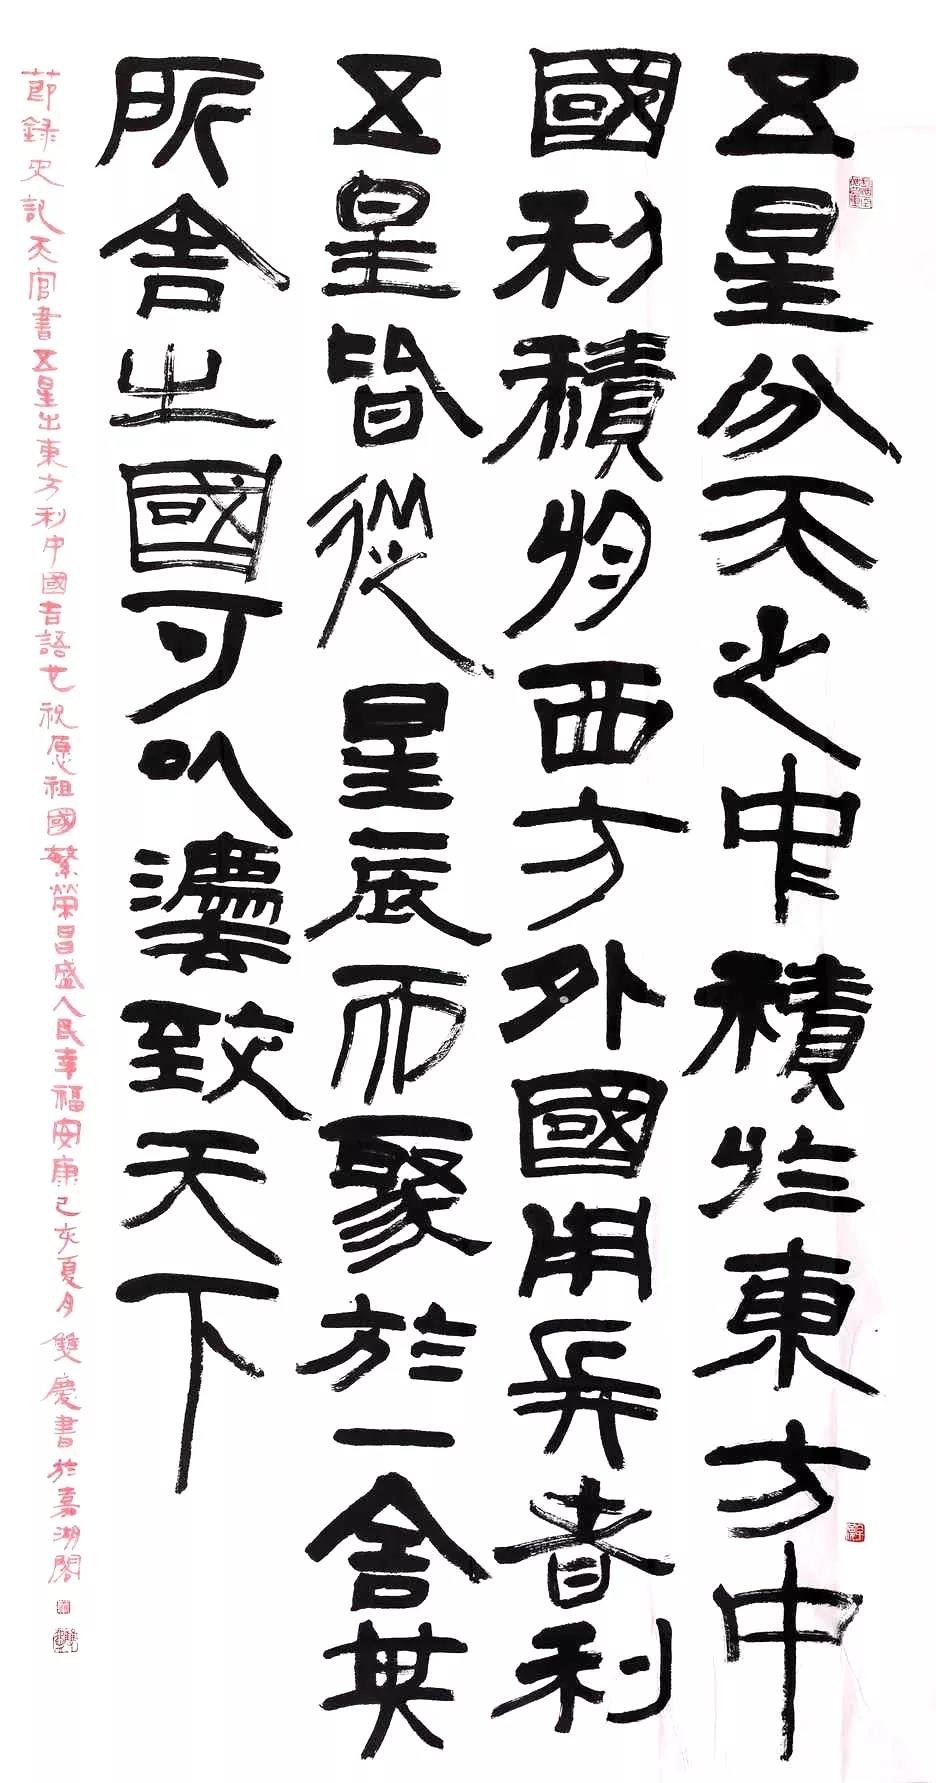 五星分天之中積於東方中
國利積於西方外國用兵者利
五星皆從星辰而聚於一舍其
所舍之國可以灋致天下
節錄史記天官書五星出東方利中國吉語也祝愿祖國繁榮昌盛人民幸福安康己亥夏月雙慶書於嘉湖閣